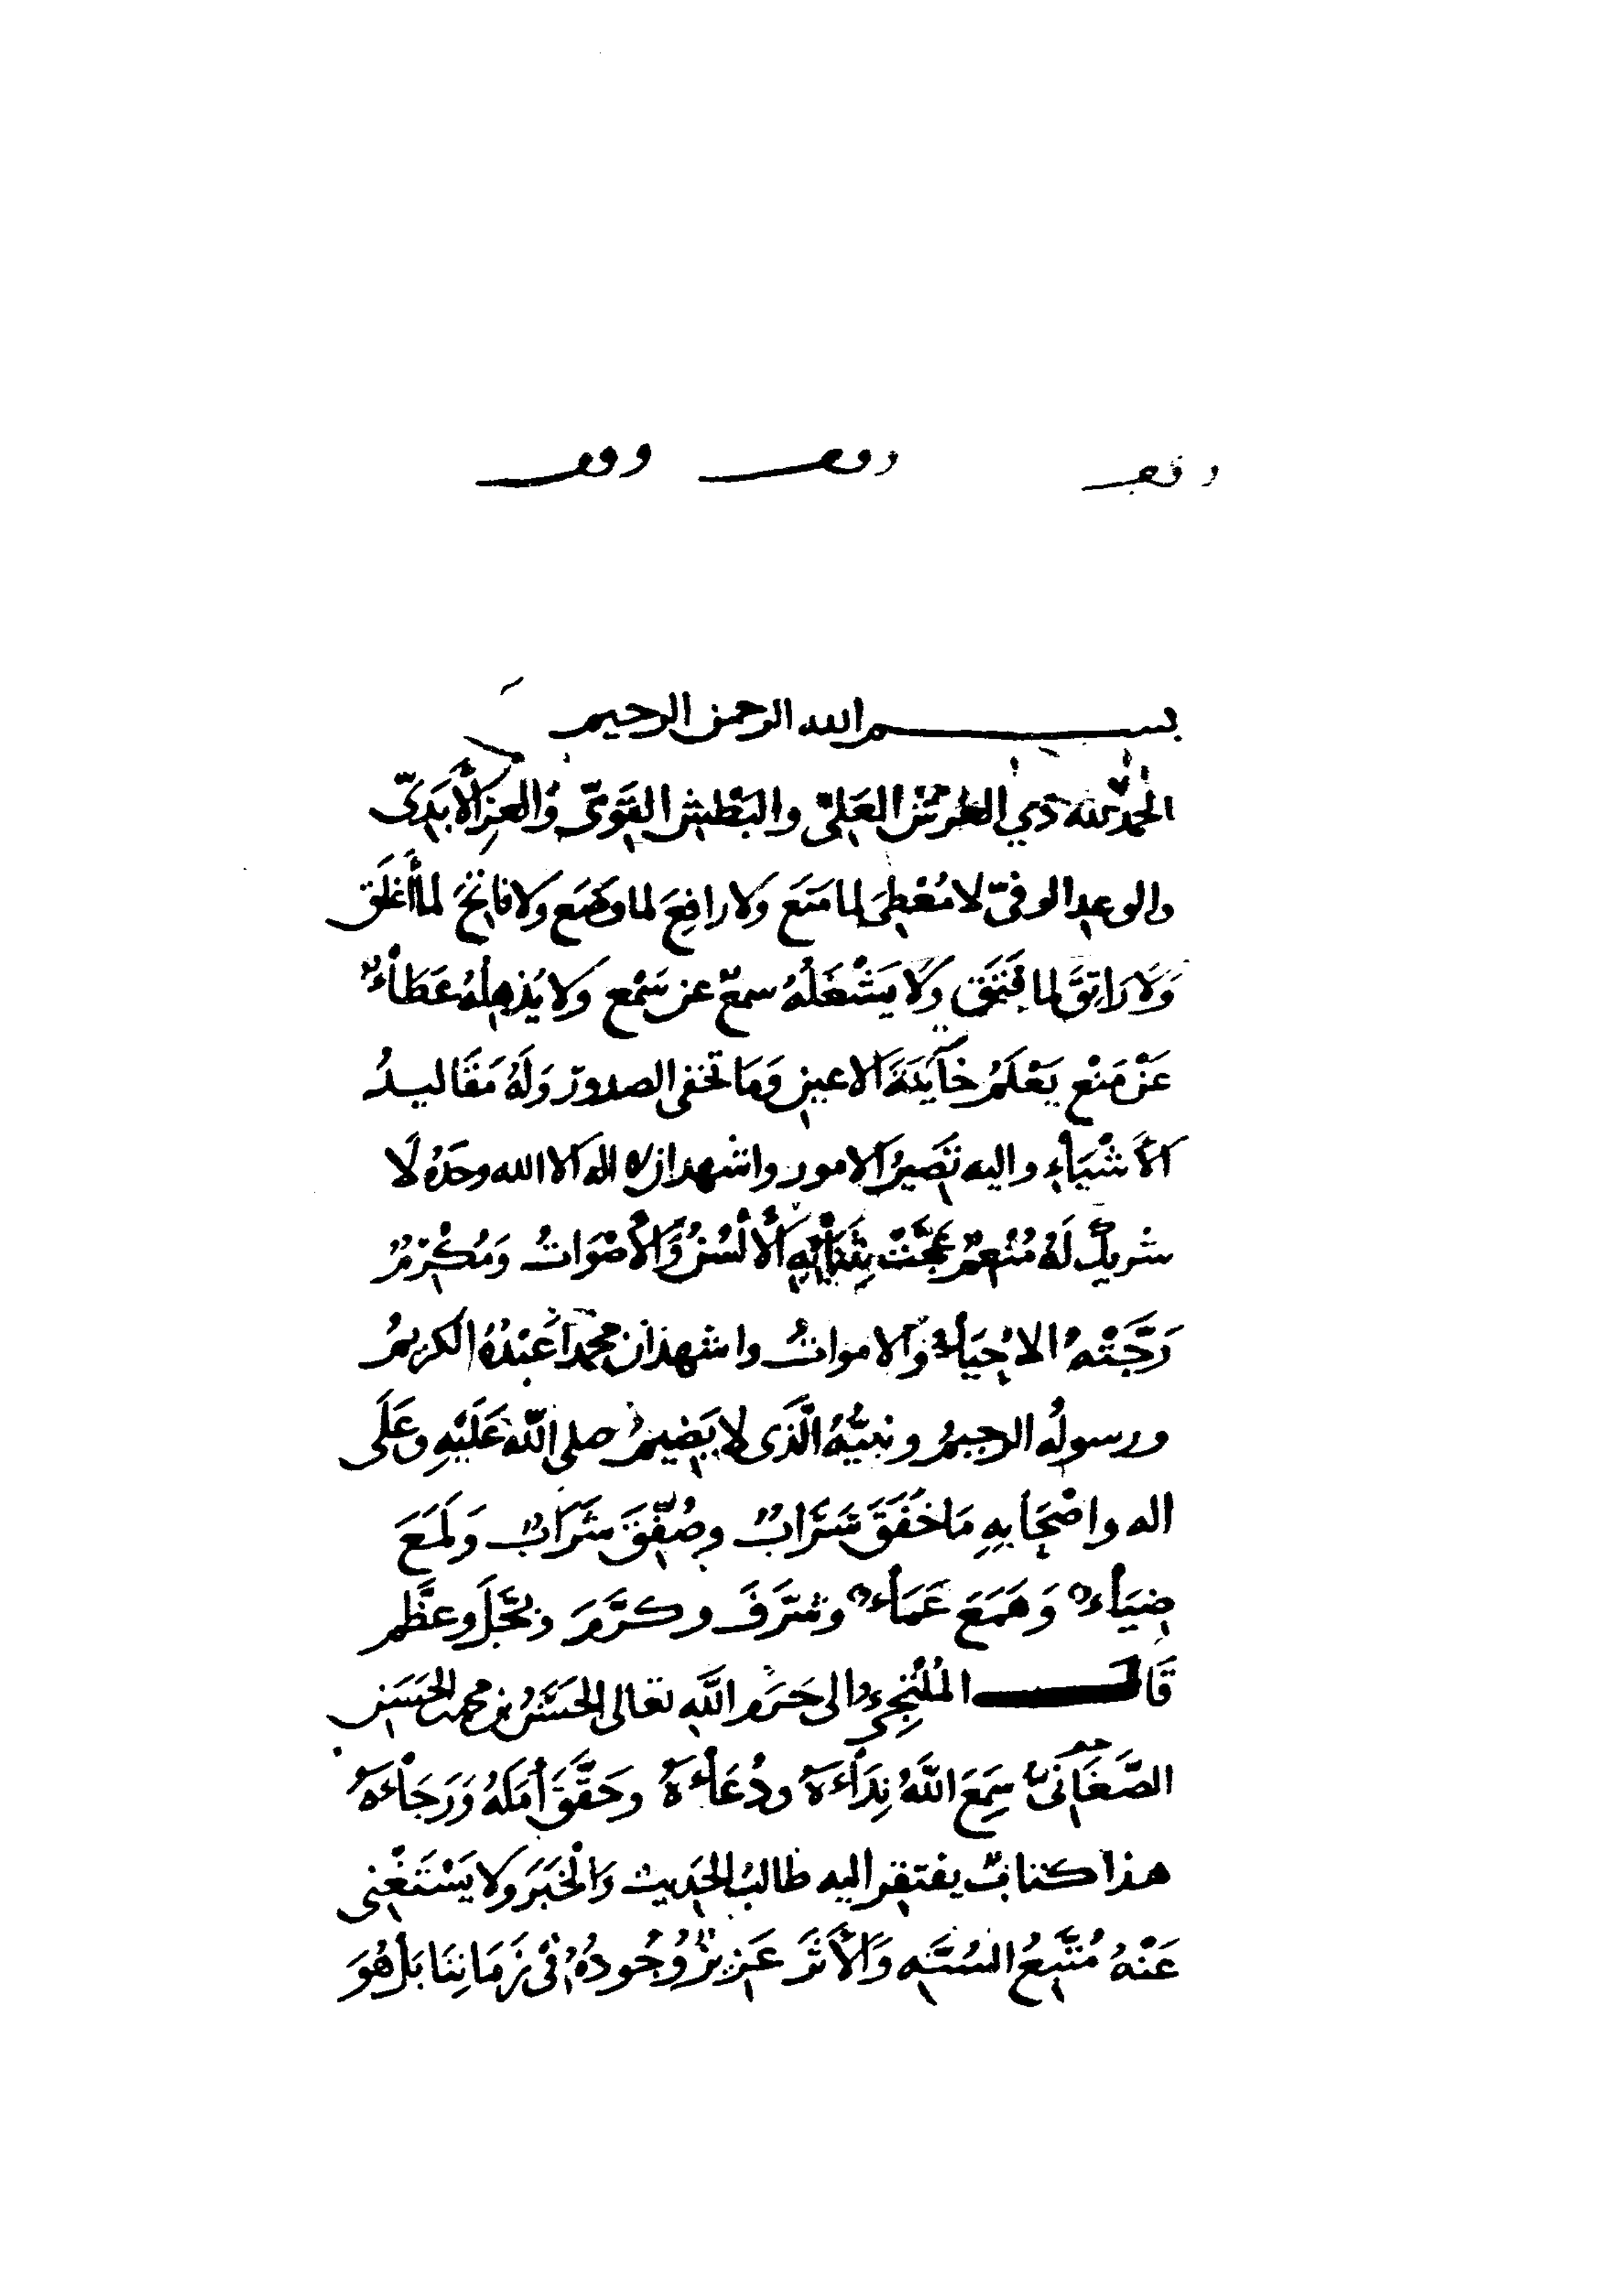 وقف وقف وقف
بسم الله الرحمن الرحيم
الحمد لله ذي العرش العَليّ والبَطْشِ القَوىّ وَالعِزِ الأَبَدىّ
والوعدِ الوفىّ لا مُعْطِىَ لما مَنَعَ وَلا رافِعَ لما وَضَع وَلا فاتِحَ لما أَغلَق
وَلَا رَاتِقَ لما فَتَقَ وَلَا يَشْغَلُهُ سمعٌ عن سَمْع وَلا يُذهِلُهُ عَطَاءٌ
عَنْ مَنْعٍ يَعْلَمُ خَآيِنَةَ الاعين وَمَا تخفى الصدور وَلَهُ مَقَاليدُ
الأَشْيَاءِ واليه تَصِيرُ الامور واشهد ان لا اله الا الله وحدَهُ لَا
شريكَ لَهُ مُنْعِمٌ عَجَّتْ بِثَنَائِهِ الأَلْسُنُ وَالأَصْوَاتُ وَمُكْرِمٌ
رَجَّتْهُ الاحْيَاءُ وَالامواتُ واشهد ان محمداً عَبْدُهُ الكريمُ
ورسولُه الرحيمُ ونبيُّهُ الَّذى لا يَضِيمُ صلى اللهُ عَلَيْهِ وعَلَى
اله واصْحَابِهِ مَا خَفَقَ سَرَابٌ وصُفِّقَ شَرَابٌ وَلَمَعَ
ضِيَاءٌ وَهَمَعَ عَمَاءٌ وشرَّفَ وكرَّمَ وبَجَّلَ وعظَّم
قَال المُلْتَجِىءُ الى حَرَمِ اللهِ تعالى الحَسَنُ بن محمد بن الحَسَن
الصَّغَانىُّ سَمِعَ اللهُ نِدَاءَهُ ودُعَاءَهُ وحَقَّقَ أَمَلَهُ وَرَجَاءَهُ
هذا كتابٌ يفتقر اليه طالبُ الحَديث وَالْخَبَرِ وَلا يَسْتَغْنِى
عَنْهُ مُتَّبِعُ السُّنَّهِ وَالأَثَرِ عَزِيزٌ وُجُودُهُ فى زَمَانِنَا بَلْ هُوَ